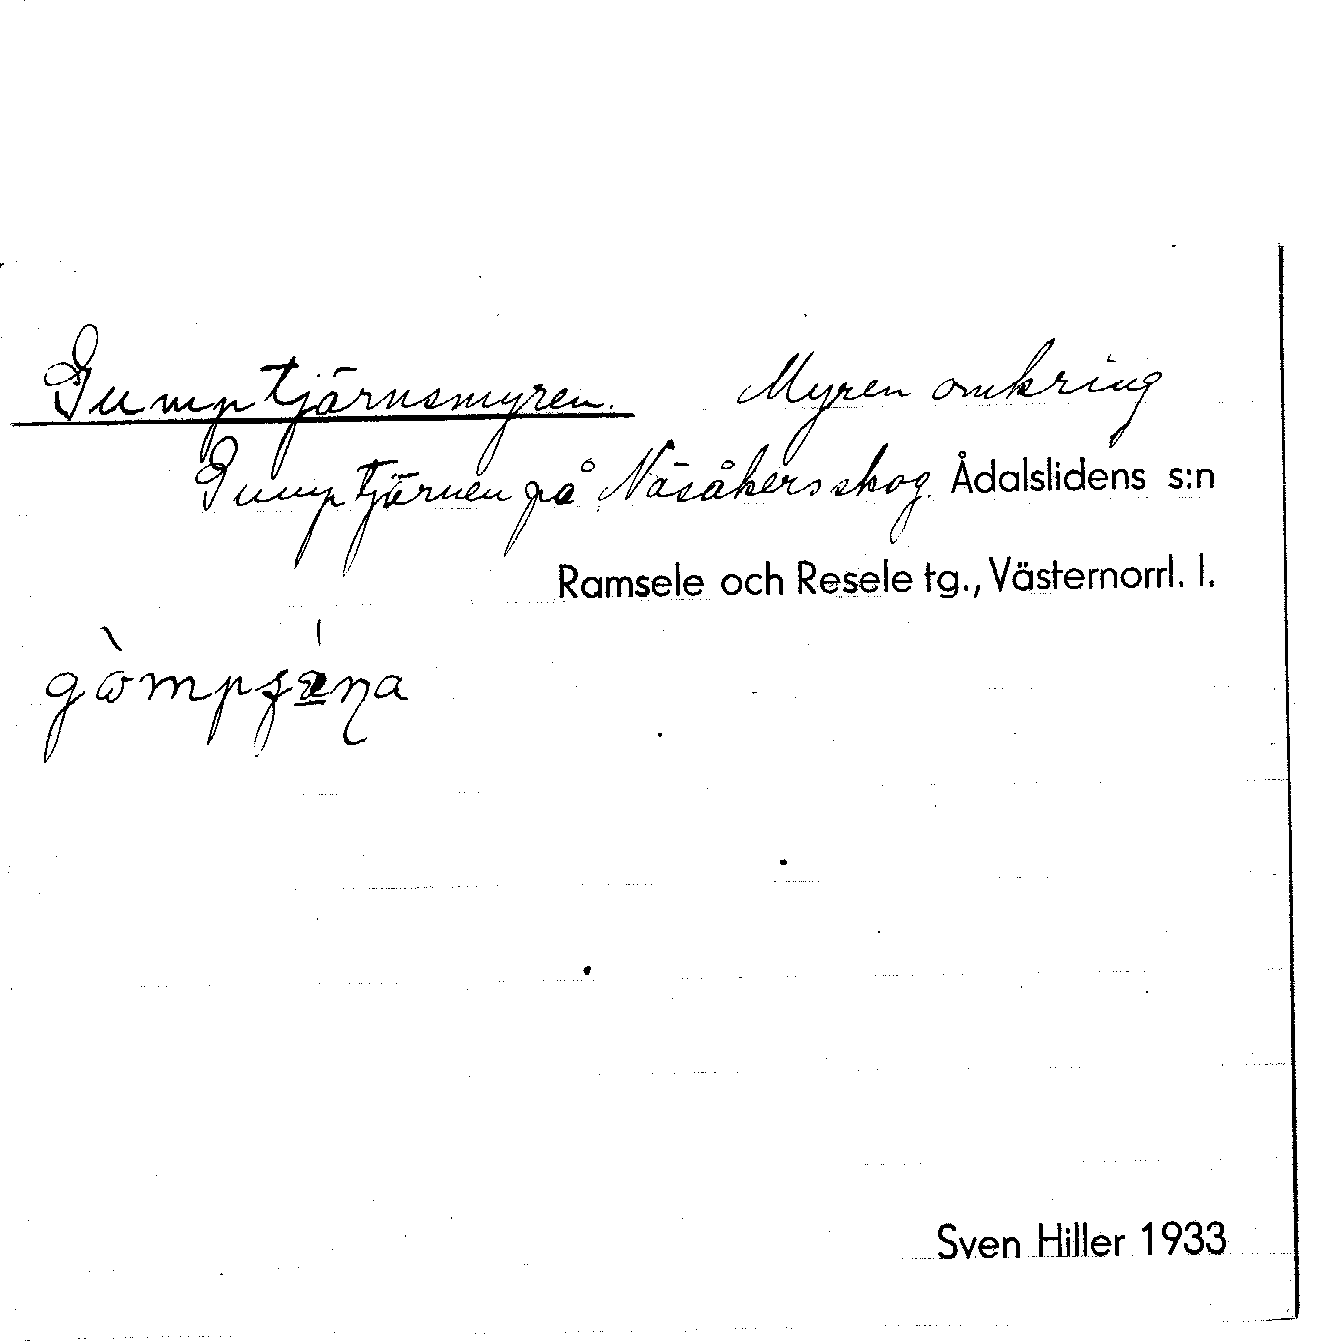 Gumptjärnsmyren. Myren omkring
Gumptjärnen på Näsåkersskog. Ådalslidens s:n
Ramsele och Resele tg., Västernorrl. l.
Sven Hiller 1933